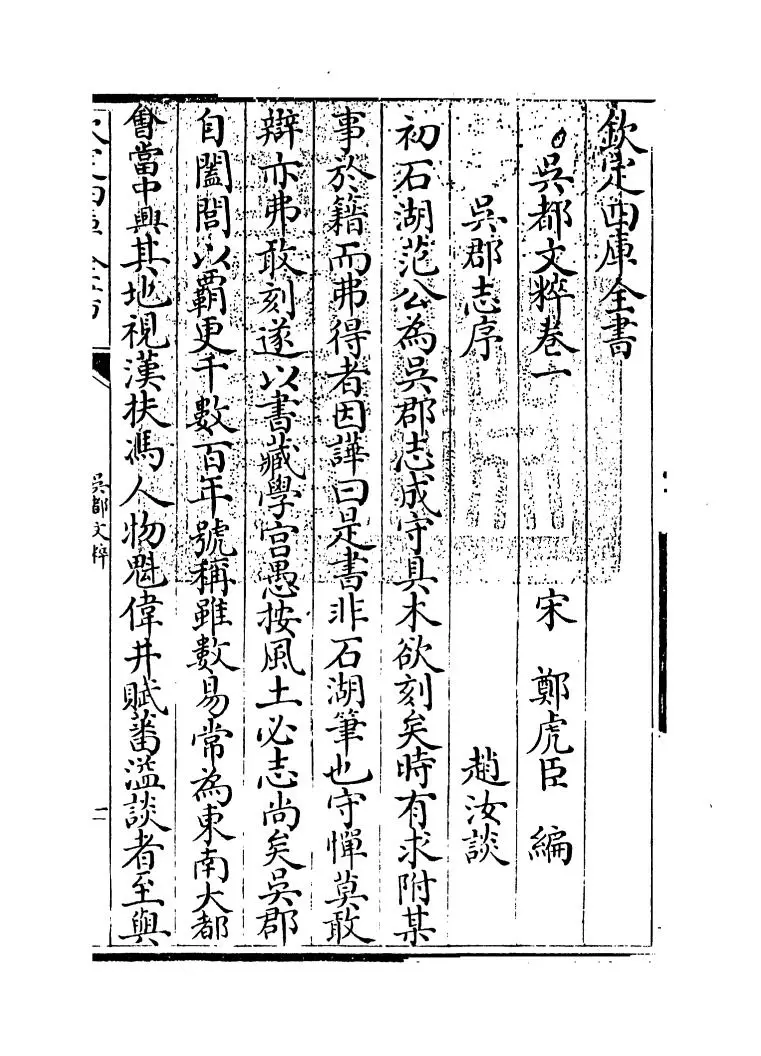 欽定四庫全書
吳都文粹卷一
宋 鄭虎臣 編
吳郡志序 趙汝談
初石湖范公為吳郡志成守具木欲刻矣時有求附某
事於籍而弗得者因譁曰是書非石湖筆也守憚莫敢
辯亦弗敢刻遂以書藏學宮愚按風土必志尚矣吳郡
自闔閭以霸更千數百年號稱雖數易常為東南大都
會當中興其地視漢扶馮人物魁偉井賦蕃溢談者至與
吳都文粹